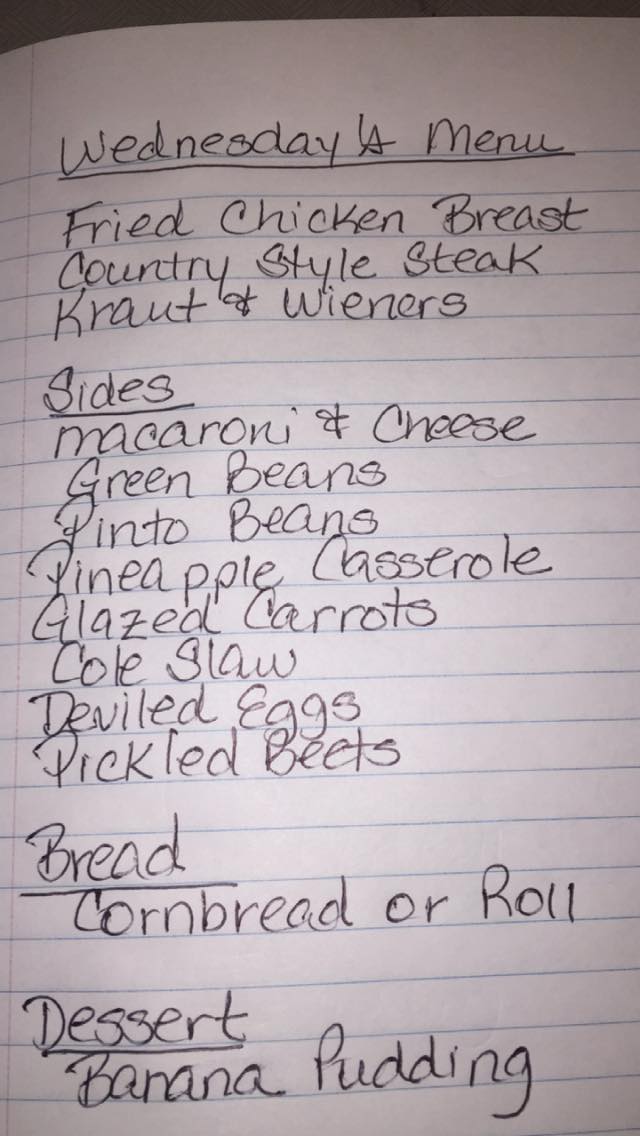 Wednesday's Menu
Fried Chicken Breast
Country Style Steak
Kraut & Wieners
Sides
macaroni & Cheese
Green Beans
Pinto Beans
Pineapple Casserole
Glazed Carrots
Cole Slaw
Deviled Eggs
Pickled Beets
Bread
Cornbread or Roll
Dessert
Banana Pudding